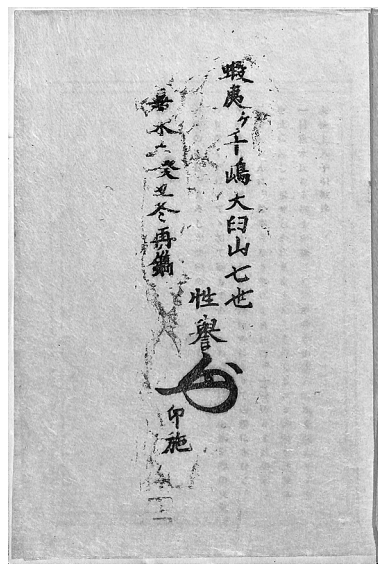 蝦夷ケ千嶋大臼山七世
性譽
印施
嘉永六癸丑冬再鐫